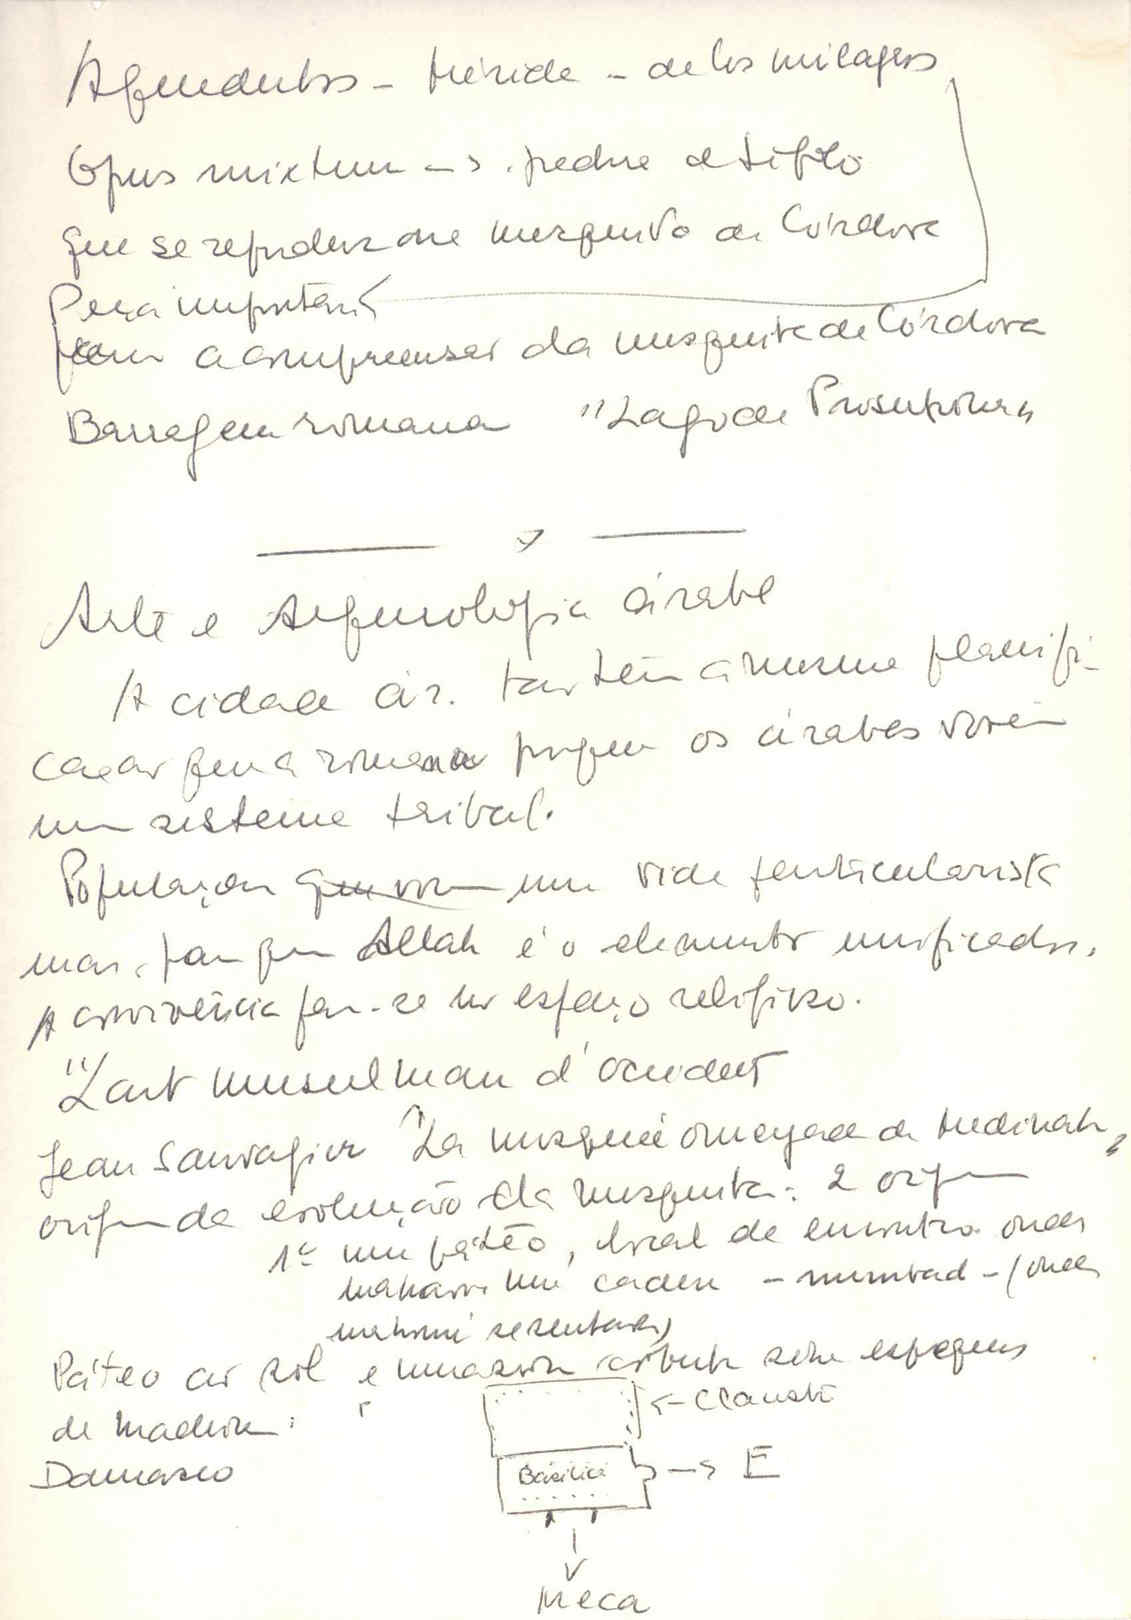 Aqueductos - Mérida - de los milagros
Opus mixtum -> pedra e tijolo
que se reproduz na mesquita de Córdova
Peça importante
para a compreensão da mesquita de Córdova
Barragem romana "Lago de Proserpina"
Arte e Arqueologia árabe
A cidade ár. não tem a mesma planifi-
cação que a romana porque os árabes vivem
num sistema tribal.
População que vive numa vida particularista
mas, para quem Allah é o elemento unificador.
A convivência faz-se no espaço religioso.
"L'art musulman d'occident
Jean Sauvaget "La mosquée omeyade de Medinah"
origem da evolução da mesquita: 2 origem
1º um páteo, local de encontro onde
havia uma cadeira - mimbad - (onde
se sentava)
Páteo ao sol e coberta
de madeira:
<- Claustro
Damasco
Basílica -> E
Meca